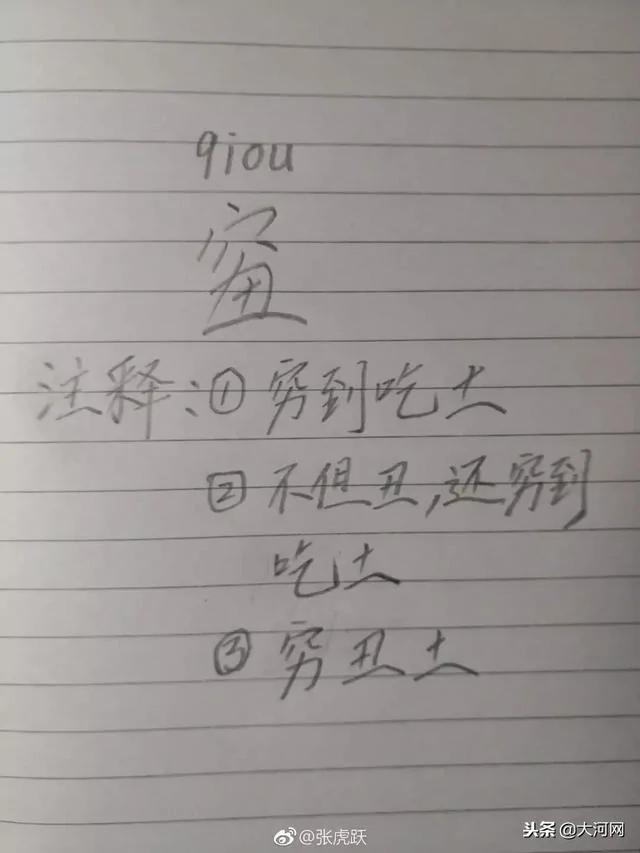 qiou
注释:①穷到吃土
②不但丑,还穷到
吃土
③穷丑土
@张虎跃
头条@大河网